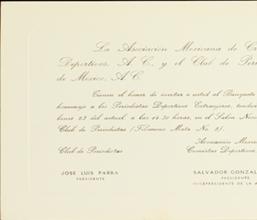 La Asociacion Mexicana de
Deportivos, A. C. y el Club de
de Mexico, A. C.
Tienen el honor de invitar a usted al Banquete
homenaje a los Periodistas Deportivos Extranjeros,
lunes 23 del actual, a las 14.30 horas, en el Salón
Club de Periodistas (Filomeno Mata No. 8).
Asociacion
Club de Periodistas Cronistas Deportivos
JOSE LUIS PARRA SALVADOR
PRESIDENTE PRESIDENTE
VICEPRESIDENTE DE LA